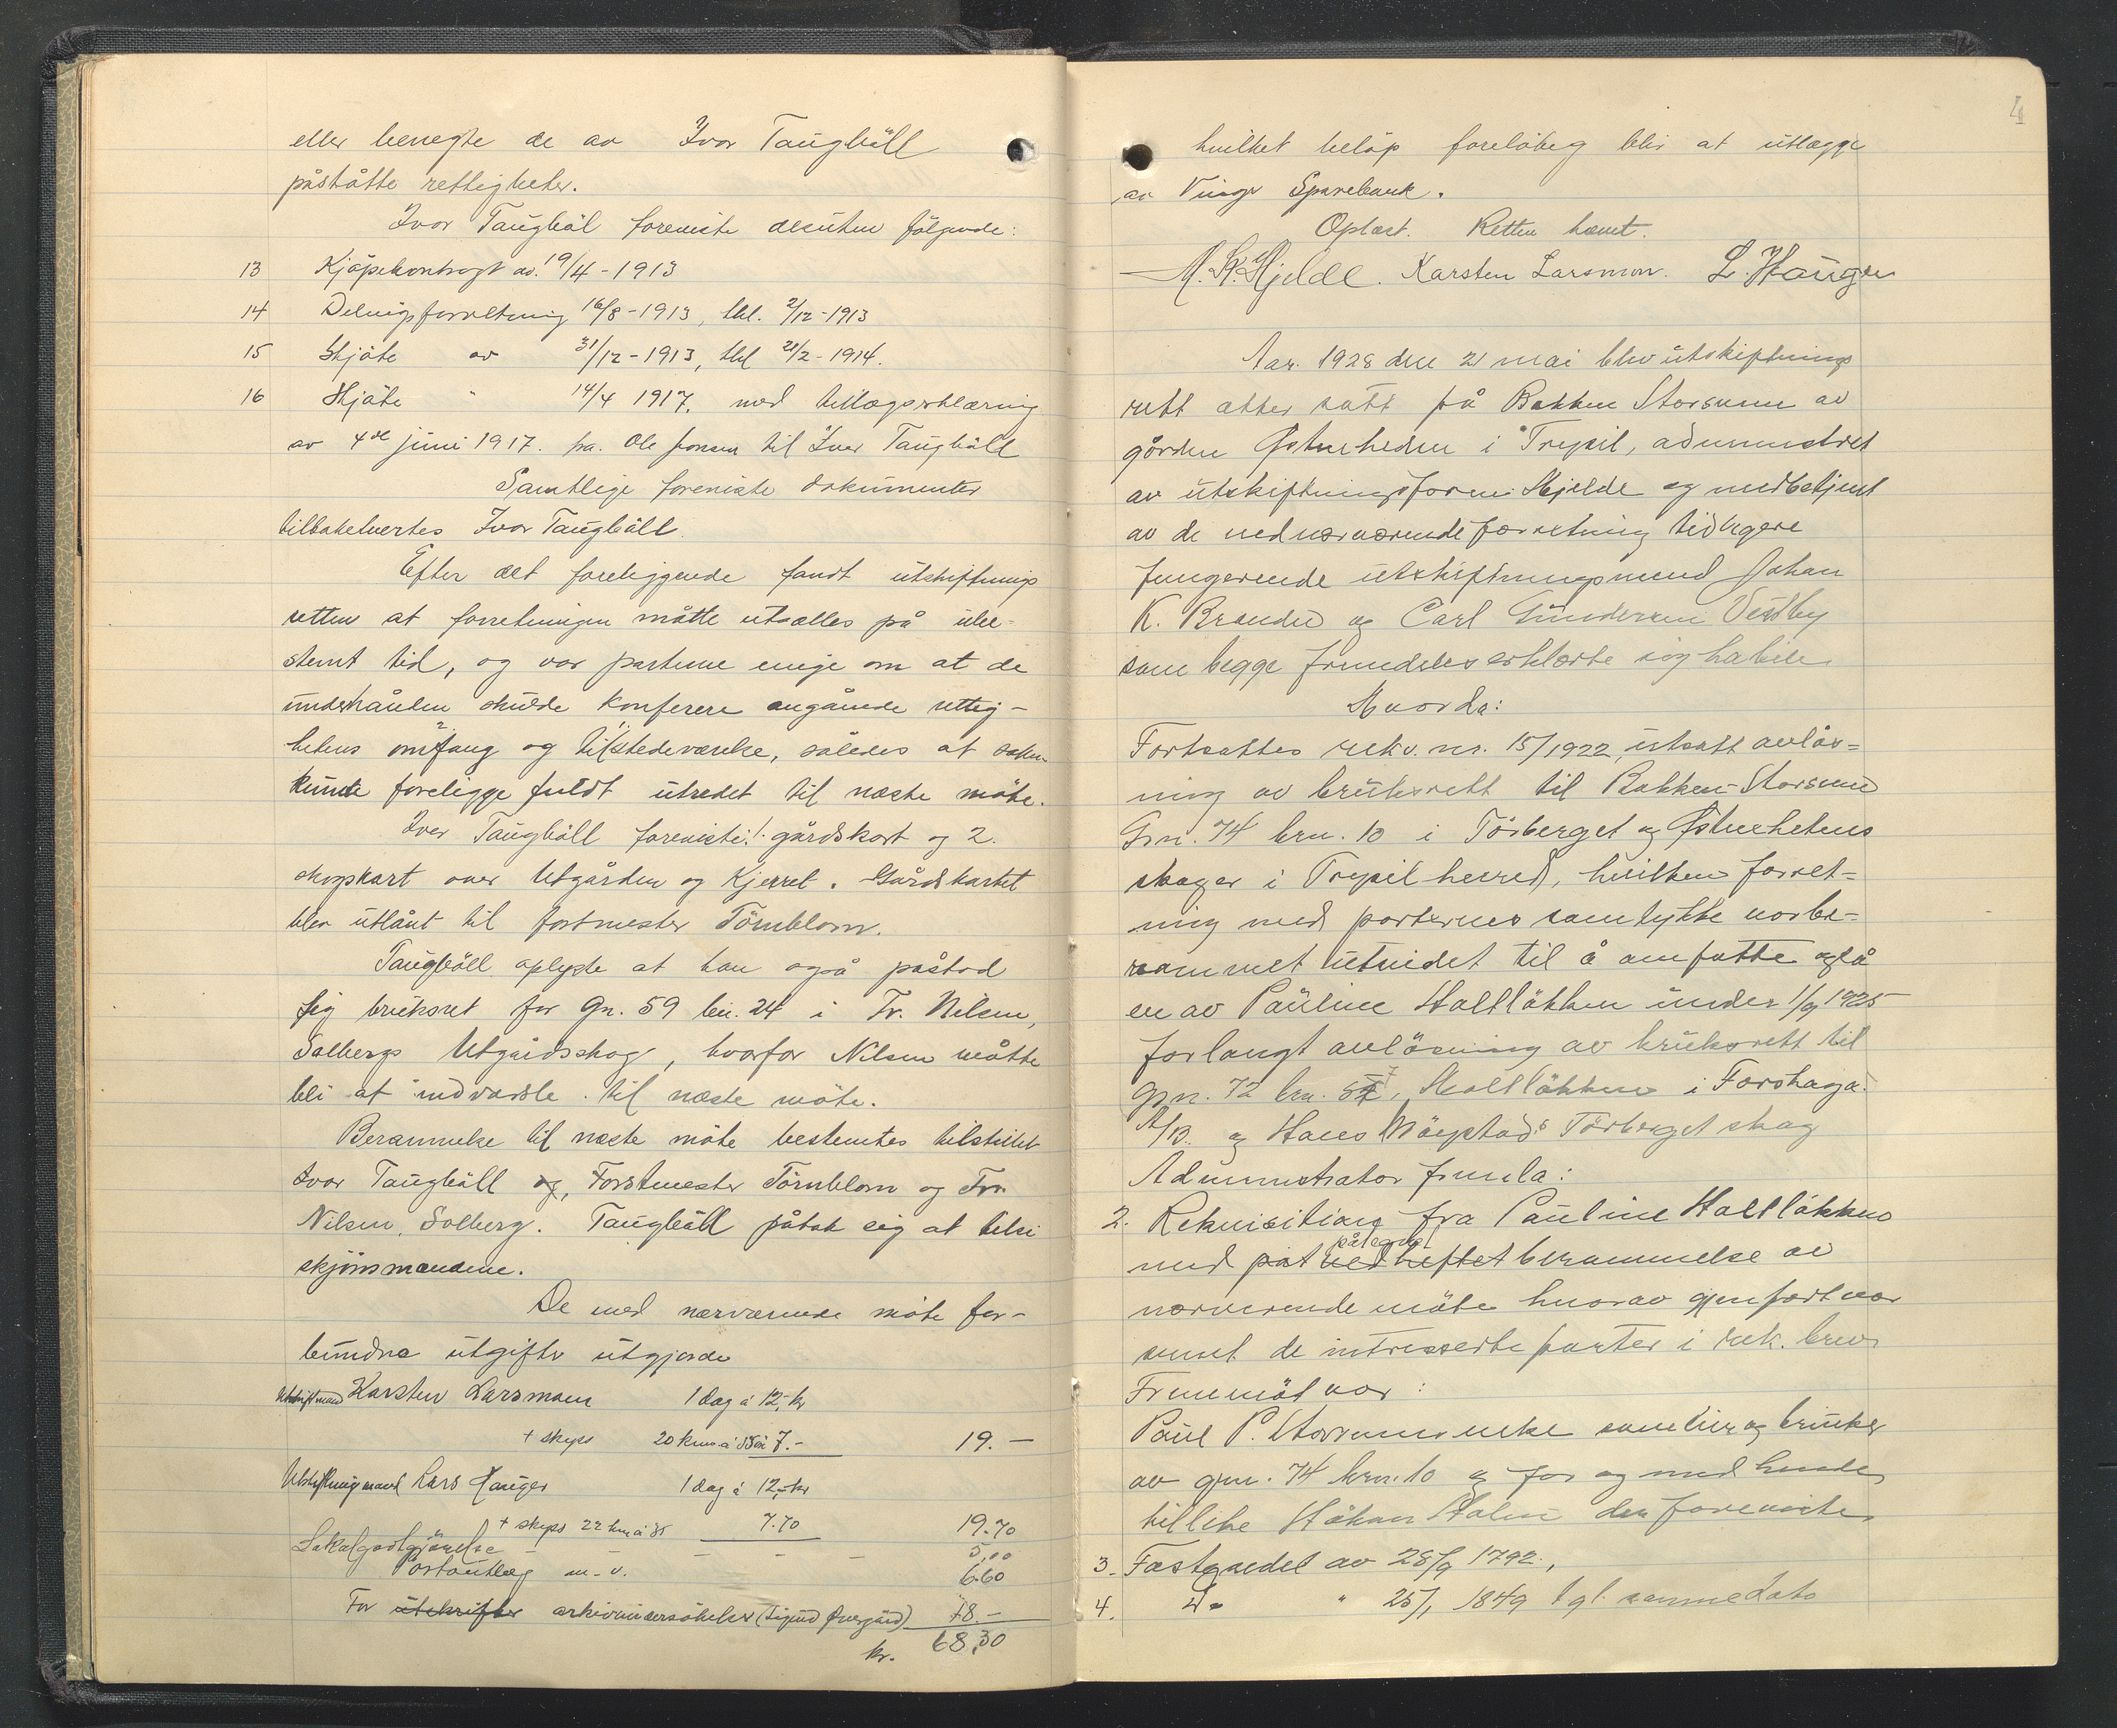 eller benegte de av Ivar Taugböll
påståtte rettigheter.
Ivar Taugböl foreviste desuten fölgende:
13 Kjöpekontragt av 19/4 - 1913
14 Delingsforretning 16/8 - 1913, thl. 2/12 - 1913
15 Skjöte av 31/12 - 1913, thl 21/2 - 1914.
16 Skjöte " 14/4 1917, med tillægserklæring
av 4de juni 1917. fra. Ole Jonsen til Iver Taugböll
Samtlige foreviste dokumenter
tilbakelevertes Ivar Taugböll.
Efter det foreliggende fandt utskiftnings
retten at forretningen måtte utsættes på ube-
stemt tid, og var parterne enige om at de
underhånden skulde konferere angående rettig-
hetens omfang og tilstedeværelse, således at saken
kunde foreligge fuldt utredet til næste möte.
Iver Taugböll foreviste: 1 gårdskart og 2
skogskart over Utgården og Kjerret. Gårdskartet
blev utlånt til forstmester Törnblom.
Taugböll oplyste at han også påstod
sig bruksret for Gn. 59 bn. 24 i Fr. Nilsen,
Solbergs Utgårdsskog, hvorfor Nilsen måtte
bli at indvarsle til næste möte.
Berammelse til næste möte bestemtes tilstillet
Ivar Taugböll og, Forstmester Törnblom og Fr.
Nilsen, Solberg. Taugböll påtok sig at tilsi
skjönsmændene.
De med nærværende möte for-
bundne utgifter utgjorde
Utskiftmand Karsten Larsmoen 1 dag á 12,- kr
+ skyss 20 km á 35 öre 7.- 19.-
Utskiftningmand Lars Hauger 1 dag á 12,- kr
+ skyss 22 km á 35 7.70 19.70
Lokalgodtgjörelse - - - - - 5,00
Portoutlæg m.v. 6.60
For utskrifter arkivundersökelser (Sigurd Övergård) 18.-
kr. 68,30
4
hvilket belöp forelöbig blir at utlægge
av Vinger Sparebank.
Oplæst. Retten hævet.
M. Sk. Hjelde. Karsten Larsmoen. L. Hauger
Aar. 1928 den 21 mai blev utskiftnings
rett atter satt på Bakken Storsunn av
gården Östenheden i Trysil, administret
av utskiftningsform. Hjelde og medbetjent
av de ved nærværende forretning tidligere
fungerende utskiftningsmend Johan
K. Brandu og Carl Gundersen Vestby
som begge fremdeles erklærte sig habile.
Hvorda:
Fortsattes rekv. nr. 15/1922, utsatt avlös-
ning av bruksrett til Bakken-Storsunn
Grn. 74 brn. 10 i Törberget og Östenhetens
skoger i Trysil herred, hvilken forret-
ning med parternes samtykke var be-
rammet utvidet til å omfatte også
en av Pauline Holtlökken under 1/9 1925
forlangt avlösning av bruksrett til
grn. 72 brn. 57, Holtlökken i Forshaga
A/B. og Hans Möystads Törberget skog
Administrator fremla:
2. Rekvisition fra Pauline Holtlökken
med påt vedheftet påtegnet berammelse av
nærværende möte hvorav gjenpart var
sendt de intresserte parter i rek. brev
Fremmöt var:
Paul P. Storsunns enke som eier og bruker
av grn. 74 brn. 10 og for og med hende
tillike Håkon Holen der foreviste
3. Fæstesedel av 28/9 1792,
4. Do " 25/1 1849 tgl. samme dato